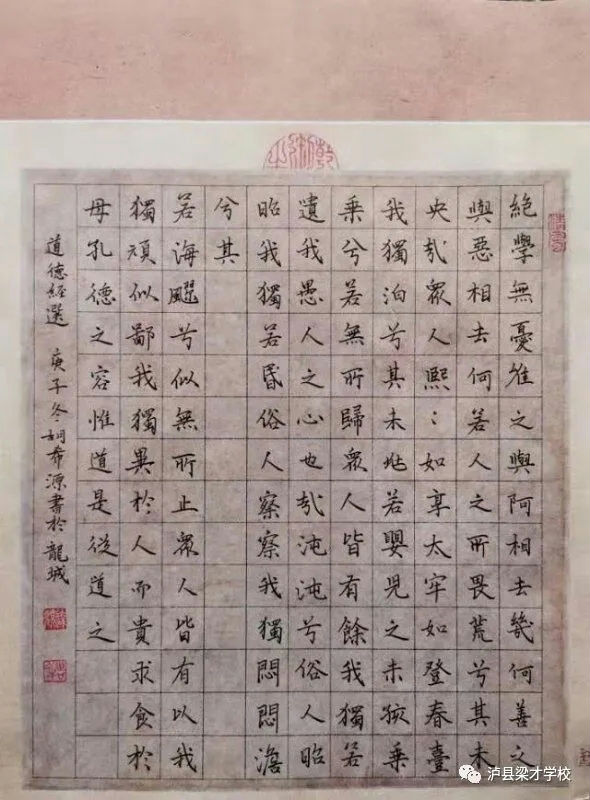 絕學無憂唯之與阿相去幾何善之
與惡相去何若人之所畏荒兮其未
央哉眾人熙〻如享太牢如登春臺
我獨泊兮其未兆若嬰兒之未孩乘
乘兮若無所歸眾人皆有餘我獨若
遺我愚人之心也哉沌沌兮俗人昭
昭我獨若昏俗人察察我獨悶悶澹
兮其
若海飂兮似無所止眾人皆有以我
獨頑似鄙我獨異於人而貴求食於
母孔德之容惟道是從道之
道德經選 庚子冬胡希源書於龍城
泸县梁才学校